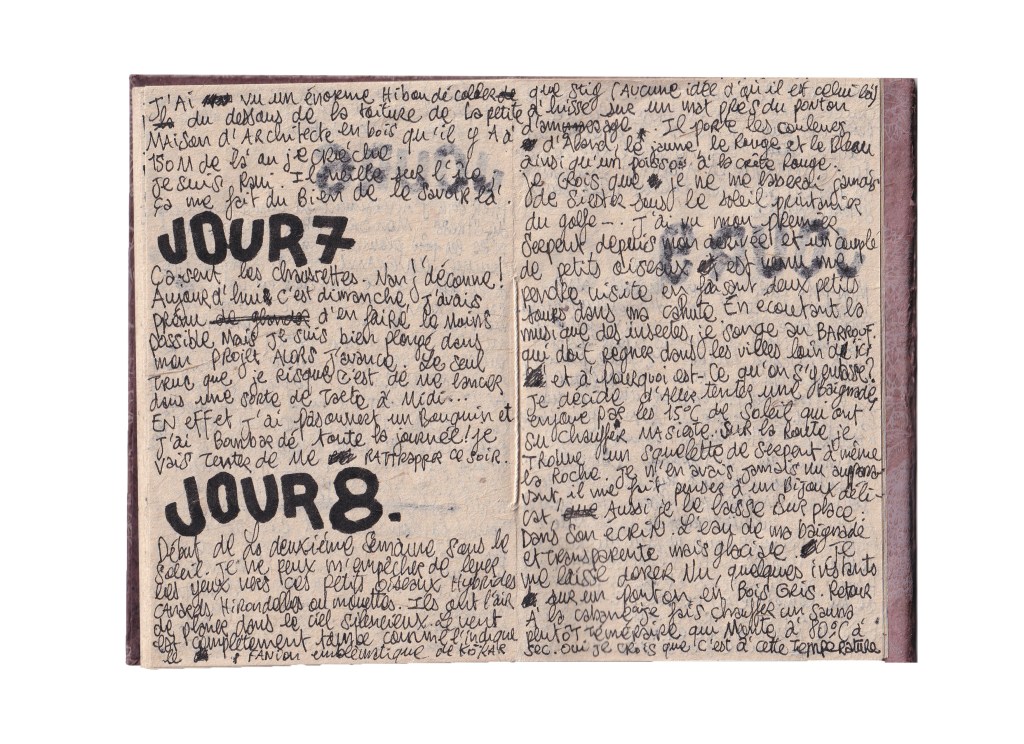 J'Ai vu un énorme Hibou décoller
du dessous de la toiture de la petite
MAison d'ARchitecte en bois qu'il y A à
150 M de là au je crèche
je suis Ravi. Il veille sur l'île
ça me fait du Bien de le savoir là.
JOUR 7
ça sent les chaussettes. Nan j'déconne!
Aujourd'hui c'est dimanche, j'avais
prévu d'en faire le moins
possible. Mais je suis bien plongé dans
mon projet ALORS j'avance. Le seul
truc que je risque c'est de me lancer
dans une sorte de à Midi...
EN effet j'ai pas ouvert un Bouquin et
j'ai Bombardé toute la journée! je
vais Tenter de me RATTRAPPER ce soir.
JOUR 8.
Début de la deuxième semaine sous le
soleil. Je ne peux m'empêcher de lever
les yeux vers ces petits oiseaux Hybrides
CANARDS, HiRondelles ou mouettes. Ils ont l'air
de planer dans le ciel silencieux. Le vent
est complètement tombé comme l'indique
le FANion emblématique de KÖKAR
que Stig (AUCUNE idée d'qui il est celui là)
a hissé sur un mât près du ponton
d'amarrage. Il porte les couleurs
d'Åland, le jaune, le Rouge et le Bleau
ainsi qu'un poisson à la crête Rouge.
je crois que je ne me lasserai jamais
de siester sous le soleil printanier
du golfe -- J'ai vu mon premier
serpent depuis mon arrivée et un couple
de petits oiseaux est venu me
rendre visite en faisant deux petits
tours dans ma cahute. En écoutant la
musique des insectes je songe au BARROUF
qui doit régner dans les villes loin d'ici
et à pourquoi est-ce qu'on s'y entasse.
Je décide d'Aller tenter une baignade,
enjoué par les 15°C de soleil qui ont
su chauffer MA sieste. Sur la Route je
TRouve un squelette de serpent d'même
la Roche. Je n'en avais jamais vu aupara-
vant, il me fait penser à un Bijoux déli-
cat. Aussi je le laisse sur place.
Dans son écrin. L'eau de ma baignade
et transparente mais glaciale. Je
me laisse dorer Nu, quelques instants
sur un ponton en Bois GRis. Retour
À la cabane fais chauffer un sauna
plutôt Téméraire qui Monte à 80°C à
sec. Oui je crois que c'est à cette TempeRature